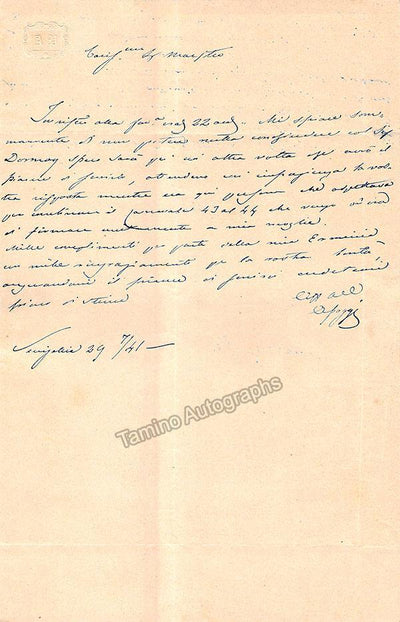 Sig Maestro
In risposta alla 22 and. Mi spiace som-
mamente di non potere nulla conchiudere coi Sigi
Dormoy spero sarà pr un altra volta che avrò il
piacere di servirlo, attendeva con impazienza la vos-
tra risposta mentre era qui persona che aspettava
per combinare il Carnevale 43 al 44 che vengo ora
di firmare unitamente a mia moglie.
Mille complimenti per parte della mia Erminia
con mille ringraziamenti per la vostra bontà
augurandomi il piacere di servirvi credetemi
pieno di stima
Poggi
Senigallia 29 7/41 —
Tamino Autographs